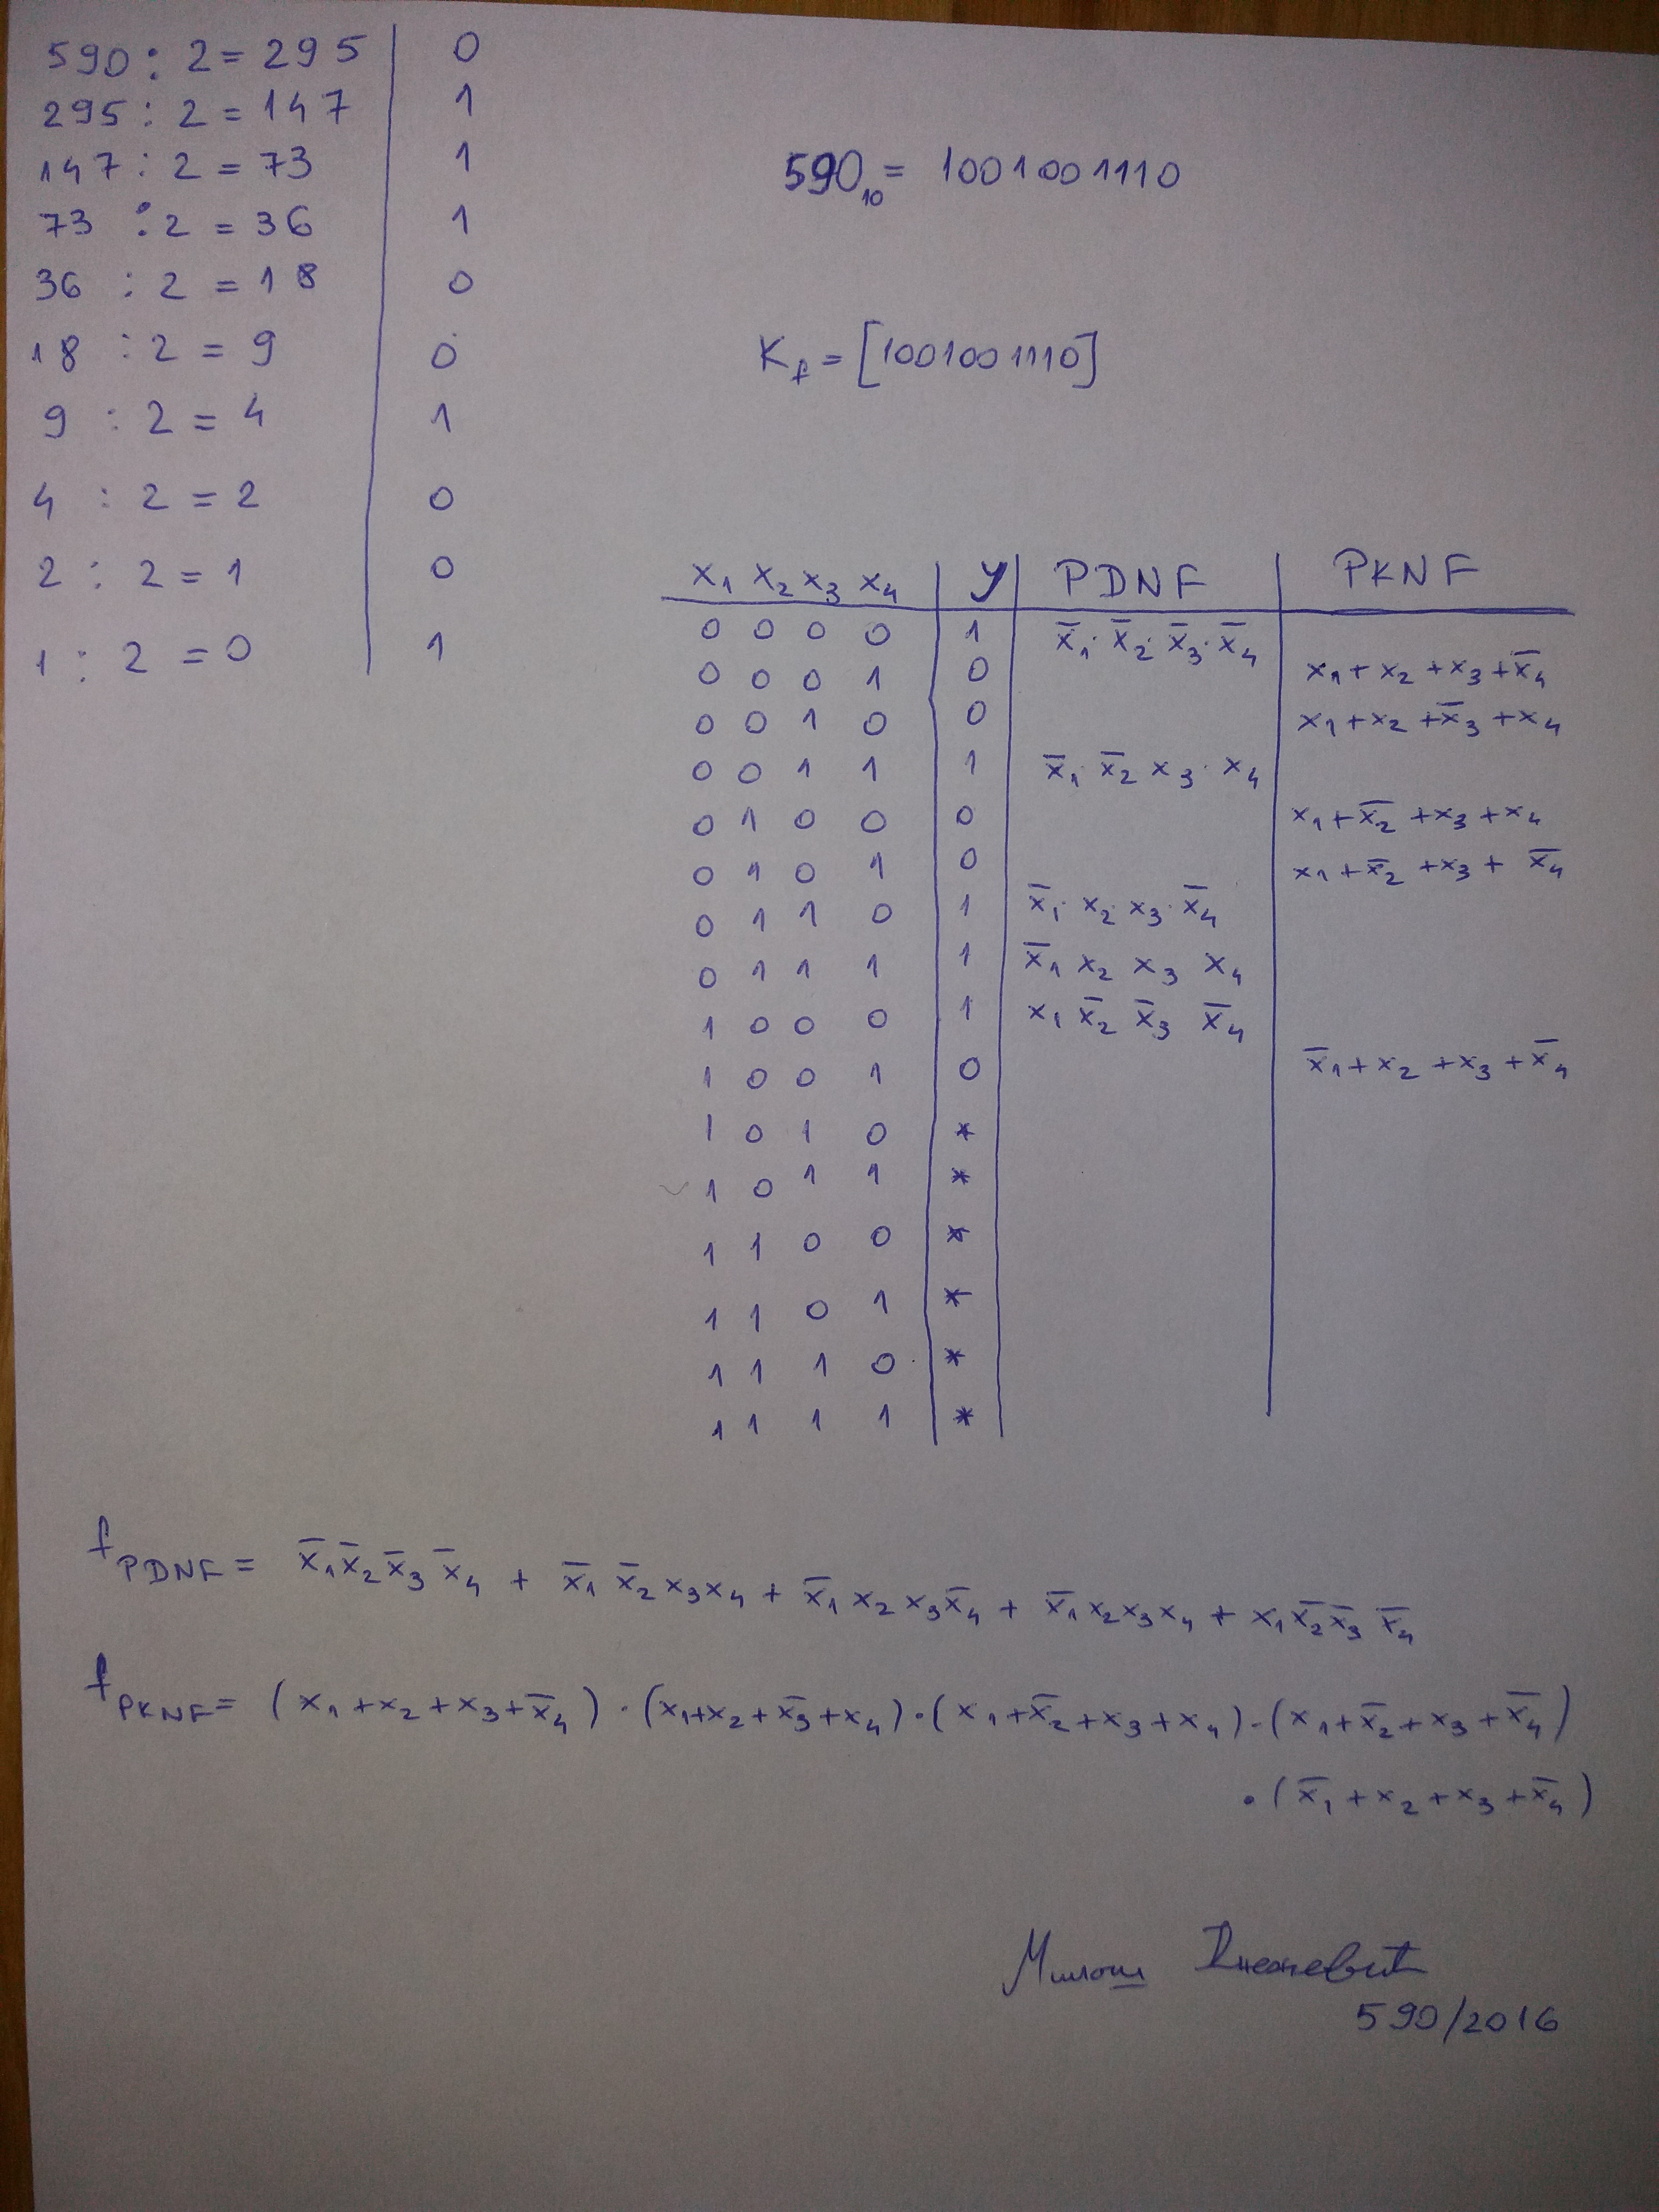 590 : 2 = 295 | 0
295 : 2 = 147 | 1
147 : 2 = 73 | 1
73 : 2 = 36 | 1
36 : 2 = 18 | 0
18 : 2 = 9 | 0
9 : 2 = 4 | 1
4 : 2 = 2 | 0
2 : 2 = 1 | 0
1 : 2 = 0 | 1
590₁₀ = 1001001110
K_f = [1001001110]
x₁ x₂ x₃ x₄ | y | PDNF | PKNF
0 0 0 0 | 1 | x̅₁·x̅₂·x̅₃·x̅₄
0 0 0 1 | 0 | | x₁+x₂+x₃+x̅₄
0 0 1 0 | 0 | | x₁+x₂+x̅₃+x₄
0 0 1 1 | 1 | x̅₁·x̅₂ x₃·x₄
0 1 0 0 | 0 | | x₁+x̅₂+x₃+x₄
0 1 0 1 | 0 | | x₁+x̅₂+x₃+x̅₄
0 1 1 0 | 1 | x̅₁·x₂·x₃·x̅₄
0 1 1 1 | 1 | x̅₁ x₂ x₃ x₄
1 0 0 0 | 1 | x₁ x̅₂ x̅₃ x̅₄
1 0 0 1 | 0 | | x̅₁+x₂+x₃+x̅₄
1 0 1 0 | *
1 0 1 1 | *
1 1 0 0 | *
1 1 0 1 | *
1 1 1 0 | *
1 1 1 1 | *
f_PDNF = x̅₁x̅₂x̅₃x̅₄ + x̅₁x̅₂x₃x₄ + x̅₁x₂x₃x̅₄ + x̅₁x₂x₃x₄ + x₁x̅₂x̅₃x̅₄
f_PKNF = (x₁+x₂+x₃+x̅₄)·(x₁+x₂+x̅₃+x₄)·(x₁+x̅₂+x₃+x₄)·(x₁+x̅₂+x₃+x̅₄)
·(x̅₁+x₂+x₃+x̅₄)
Милош
590/2016